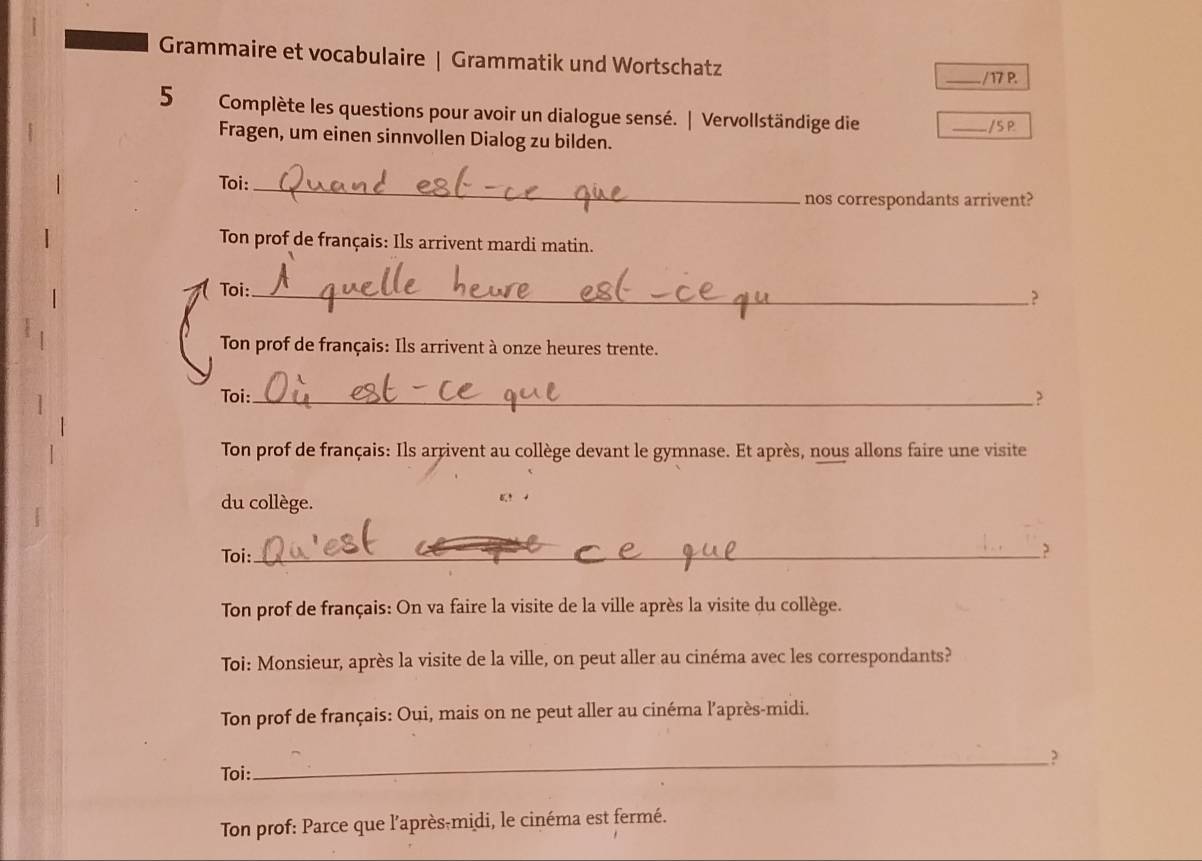 Grammaire et vocabulaire | Grammatik und Wortschatz
___/17 P.
5 Complète les questions pour avoir un dialogue sensé. | Vervollständige die
___/5 P.
Fragen, um einen sinnvollen Dialog zu bilden.
Toi: Quand est-ce que nos correspondants arrivent?
Ton prof de français: Ils arrivent mardi matin.
Toi: À quelle heure est-ce qu ?
Ton prof de français: Ils arrivent à onze heures trente.
Toi: Où est-ce que ?
Ton prof de français: Ils arrivent au collège devant le gymnase. Et après, nous allons faire une visite
du collège.
Toi: Qu'est ce que ?
Ton prof de français: On va faire la visite de la ville après la visite du collège.
Toi: Monsieur, après la visite de la ville, on peut aller au cinéma avec les correspondants?
Ton prof de français: Oui, mais on ne peut aller au cinéma l'après-midi.
Toi: ?
Ton prof: Parce que l'après-midi, le cinéma est fermé.